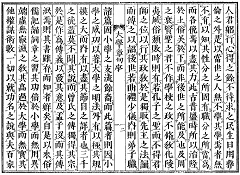 人君躬行心得之餘不待求之民生日用彝
倫之外是以當世之人無不學其學焉者無
不有以知其性分之所固有職分之所當為
而各俛焉以盡其力此古昔盛時所以治隆
於上俗美於下而非後世之所能及也及周
之衰賢聖之君不作學校之政不脩教化陵
夷風俗頹敗時則有若孔子之聖而不得君
師之位以行其政教於是獨取先王之法誦
而傳之以詔後世若曲禮少儀內則弟子職
大學章句序
諸篇固小學之支流餘裔而此篇者則因小
學之成功以著大學之明法外有以極其規
模之大而內有以盡其節目之詳者也三千
之徒蓋莫不聞其說而曾氏之傳獨得其宗
於是作為傳義以發其意及孟子沒而其傳
泯焉則其書雖存而知者鮮矣自是以來俗
儒記誦詞章之習其功倍於小學而無用異
端虛無寂滅之教其高過於大學而無實其
他權謀術數一切以就功名之說與夫百家